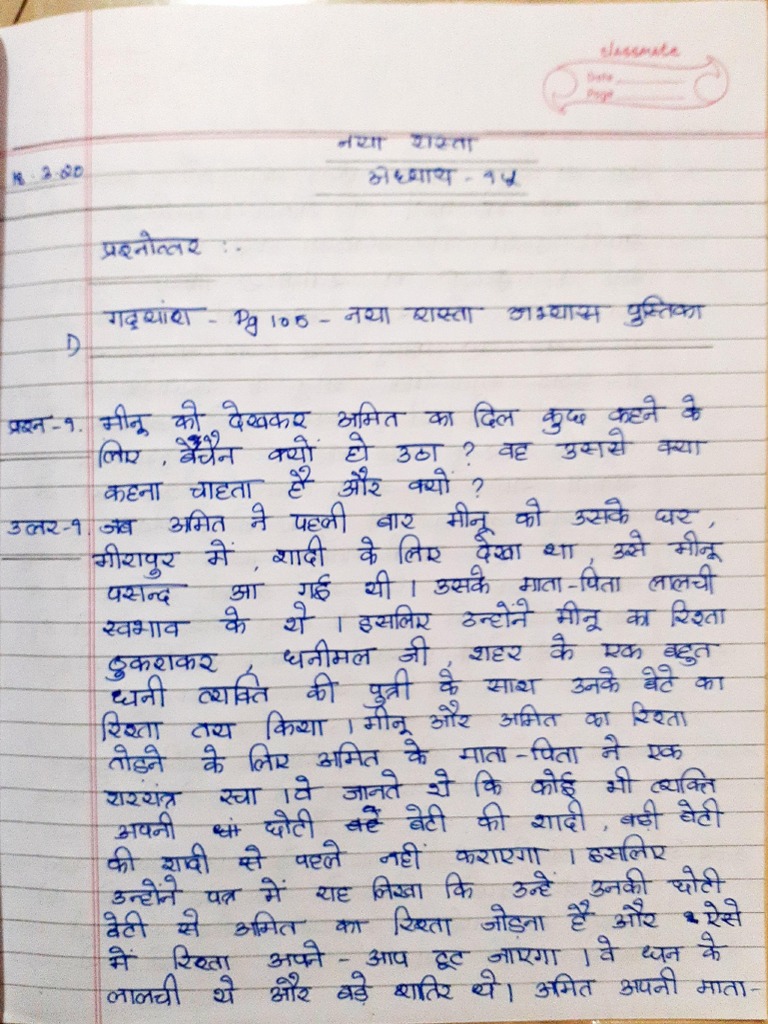 classmate
Date
Page
नया रास्ता
18.3.20
अध्याय - १५
प्रश्नोत्तर :-
गद्यांश - Pg 105 - नया रास्ता अभ्यास पुस्तिका
1)
प्रश्न-१. मीनू को देखकर अमित का दिल कुछ कहने के
लिए, बेचैन क्यों हो उठा ? वह उससे क्या
कहना चाहता है और क्यों ?
उत्तर-१. जब अमित ने पहली बार मीनू को उसके घर,
मीरापुर में, शादी के लिए देखा था, उसे मीनू
पसन्द आ गई थी । उसके माता-पिता लालची
स्वभाव के थे । इसलिए उन्होंने मीनू का रिश्ता
ठुकराकर, धनीमल जी, शहर के एक बहुत
धनी व्यक्ति की पुत्री के साथ उनके बेटे का
रिश्ता तय किया । मीनू और अमित का रिश्ता
तोड़ने के लिए अमित के माता-पिता ने एक
रचा । वे जानते थे कि कोई भी व्यक्ति
अपनी छोटी बेटी की शादी, बड़ी बेटी
की शादी से पहले नहीं कराएगा । इसलिए
उन्होंने पत्र में यह लिखा कि उन्हें उनकी छोटी
बेटी से अमित का रिश्ता जोड़ना है और ऐसे
में रिश्ता अपने - आप टूट जाएगा । वे धन के
लालची थे और बड़े शातिर थे। अमित अपनी माता-